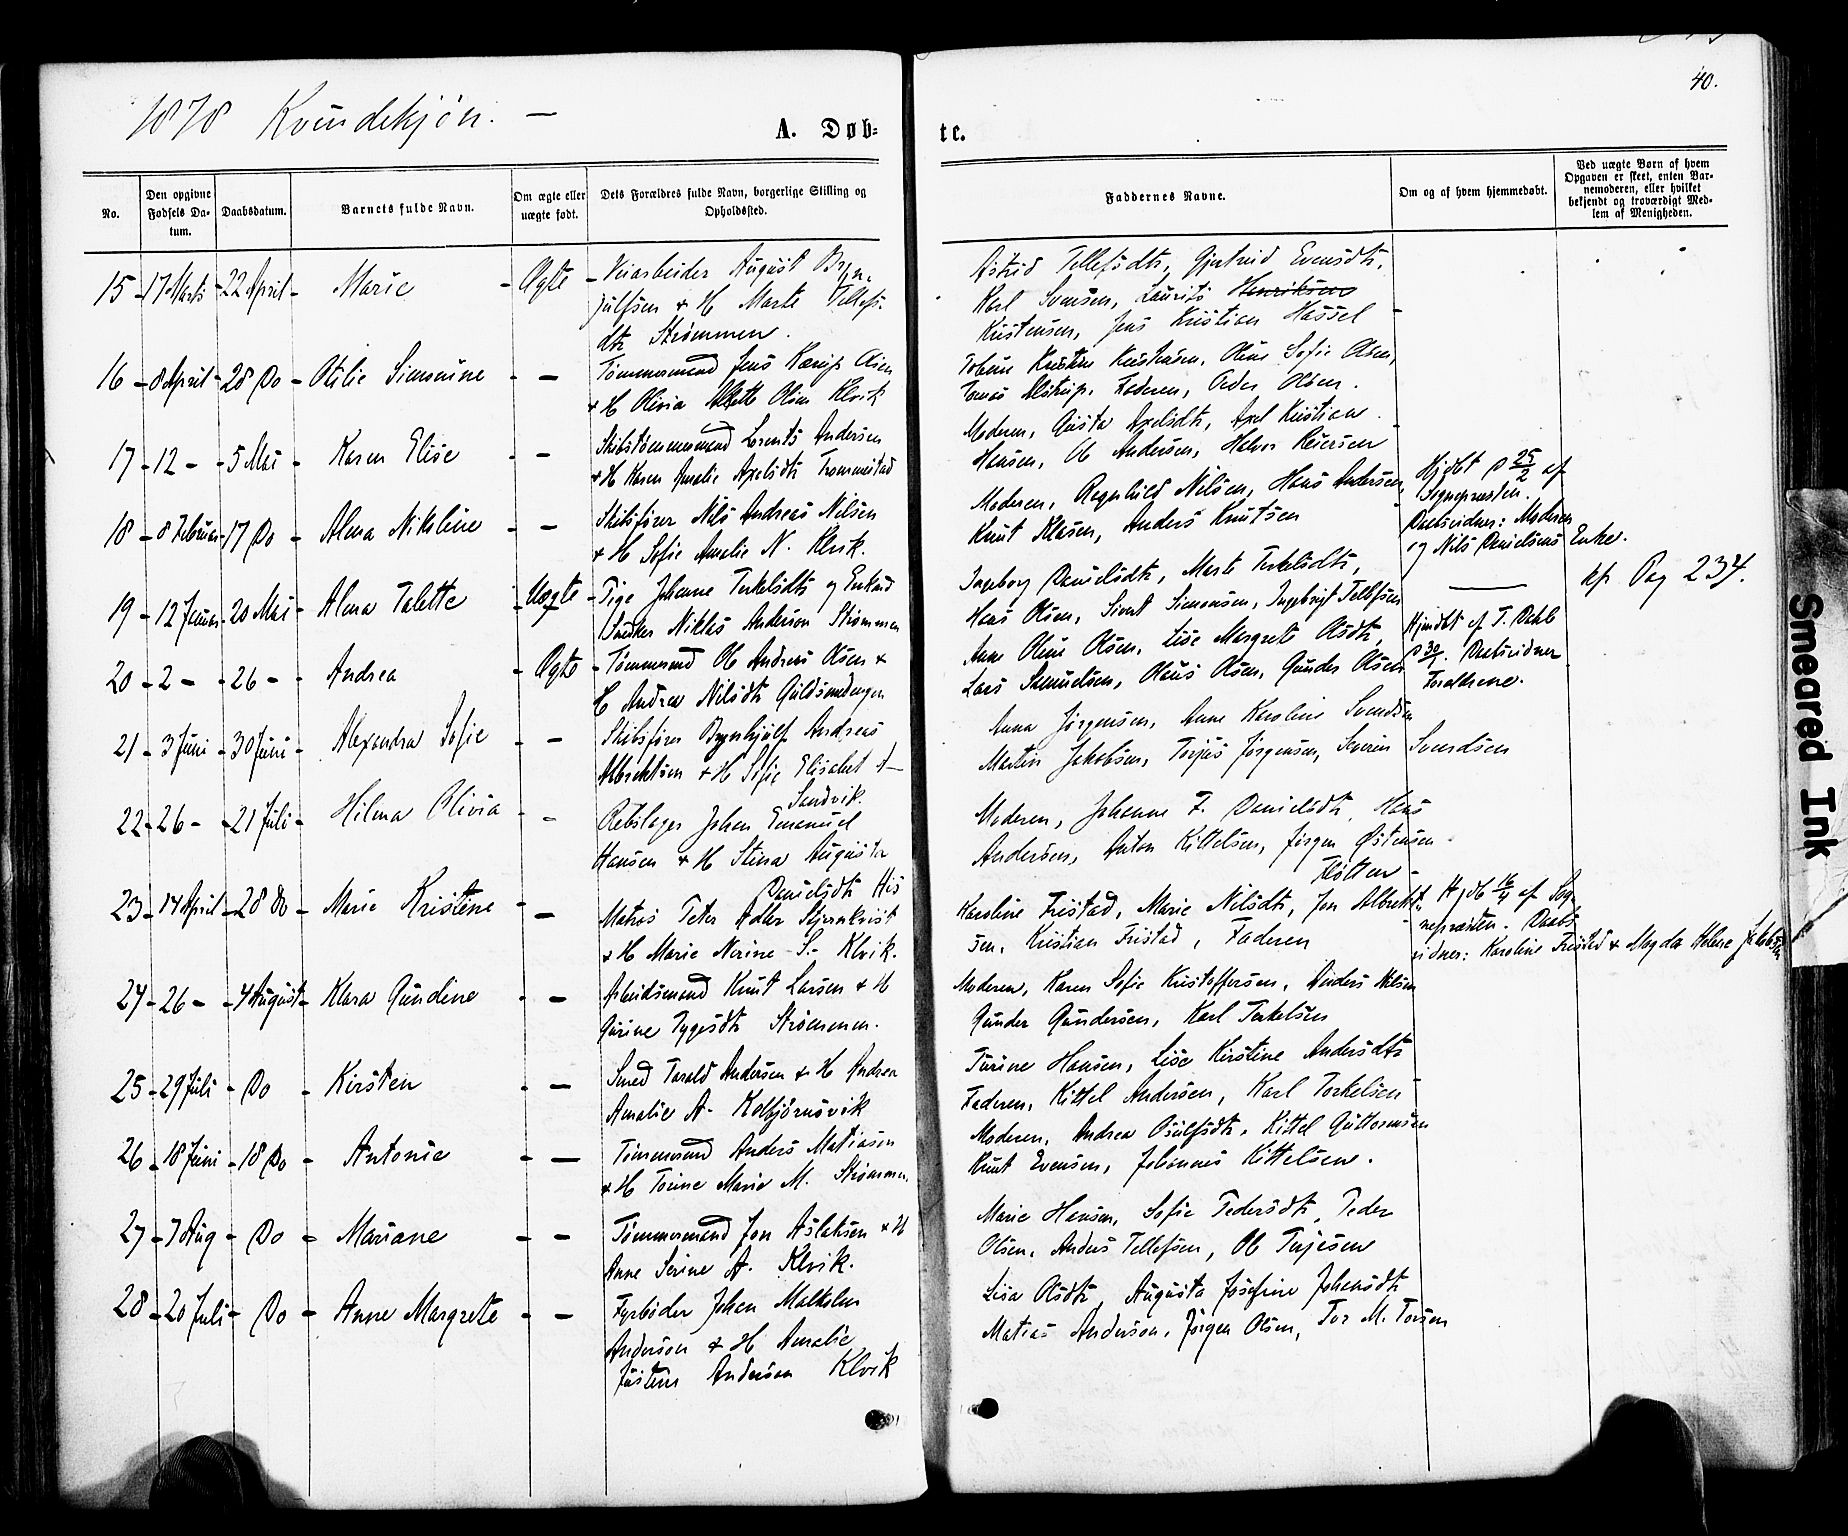 40.
1878 Kvindekjøn. —
A. Døb-
te.
No.
Den opgivne Fødsels Da-
tum.
Daabsdatum.
Barnets fulde Navn.
Om ægte eller
uægte født.
Dets Forældres fulde Navn, borgerlige Stilling og
Opholdssted.
Faddernes Navne.
Om og af hvem hjemmedøbt.
Ved uægte Børn af hvem
Opgaven er skeet, enten Bar-
nemoderen, eller hvilket
bekjendt og troværdigt Med-
lem af Menigheden.
15 - 17 Marts - 22 April - Marie - Ægte - Veiarbeider August Bryn-
julfsen & H Marte Tellefs-
dtr Strømmen.
Astrid Tellefsdtr, Gjertrud Evensdtr,
Karl Svensen, Laurits Henriksen
Kristensen, Jens Kristian Hassel -
16 - 8 April - 28 Do - Otilie Simonine - — Tømmermand Jens Olsen
& H Olivia Olsen Klvik
Kristensen, Oline Sofie Olsen,
Tomas Alstrup, Faderen, Peder Olsen.
17 - 12 - - 5 Mai - Karen Elise - — Skibstømmermand Lorents Andersen
& H Karen Amalie Axelsdtr Trommestad
Moderen, Gusta Axelsdtr, Axel Kristian
Hansen, Ole Andersen, Halvor Reiersen
18 - 8 Februar - 17 Do - Alma Nikoline - — Skibsfører Nils Andreas Nilsen
& H Sofie Amalie N. Klvik.
Moderen, Ragnhild Nilsen, Hans Andersen,
Knut Klasen, Anders Knutsen
Hjdbt d 25/2 af
Sognepræsten.
Daabsvidner: Moderen
og Nils Danielsens Enke.
19 - 12 Januar - 20 Mai - Alma Talette - Uægte - Pige Johanne Terkelsdtr og Enkemd
Snedker Niklas Anderson Strømmen
Ingeborg Danielsdtr, Marte Terkelsdtr,
Hans Olsen, Sivert Simonsen, Ingebrigt Tellefsen
— kf. Pag 234.
20 - 2 - - 26 - - Andrea - Ægte - Tømmermd Ole Andreas Olsen &
H Andrea Nilsdtr Guldsmedengen
Anne Oline Olsen, Lise Margrete Olsdtr,
Lars Samuelsen, Olaus Olsen, Gunder Olsen
Hjmdbt af T. Dahl
d 30/1. Daabsvidner
Forældrene.
21 - 3 Juni - 30 Juni - Alexandra Sofie - — Skibsfører Brynhjulf Andreas
Albrektsen & H Sofie Elisabet A—
Sandvik.
Anna Jörgensen, Anne Karoline Svendsen
Martin Jakobsen, Terjes Jörgensen, Severin Svendsen
22 - 26 - - 21 Juli - Hilma Olivia - — Rebslager Johan Emanuel
Hansen & H Stina Augusta
Danielsdtr His
Moderen, Johanne F. Danielsdtr, Hans
Andersen, Anton Kittelsen, Jörgen Østensen
Fløtten -
23 - 14 April - 28 Do - Marie Kristine - — Matros Peter Adler Stjernkvist
& H Marie Nerine S- Klvik.
Karoline Fristad, Marie Nilsdtr, Jon Albrekt-
sen, Kristian Fristad, Faderen
Hjdb 16/4 af Sog-
nepræsten. Daabs
vidner: Karoline Fristad & Magda Helene Jakobsen
24 - 26 - - 4 August - Klara Gundine - — Arbeidsmand Knut Larsen & H
Gurine Tygesdtr Strømmen.
Moderen, Karen Sofie Kristoffersen, Anders Nilsen
Gunder Gundersen, Karl Terkelsen
25 - 29 Juli - Do - Kirsten - — Smed Tarald Andersen & H Andrea
Amalie A- Kolbjörnsvik
Turine Hansen, Lise Kirstine Andersdtr
Faderen, Kittel Andersen, Karl Torkelsen
26 - 18 Juni - 18 Do - Antonie - — Tömmermd Anders Matiasen
& H Torine Marie M. Strømmen.
Moderen, Andrea Osulfsdtr, Kittel Guttormsen
Knut Evensen, Johannes Kittelsen.
27 - 7 Aug - Do - Mariane - — Tömmermand Jon Aslaksen & H
Anne Serine A. Klvik.
Marie Hansen, Sofie Pedersdtr, Peder
Olsen, Anders Tellefsen, Ole Terjesen
28 - 20 Juli - Do - Anne Margrete - — Fyrbøder Johan Malkolm
Anderson & H Amalie
Justine Anderson Klvik
Lisa Olsdtr, Augusta Josefine Johansdtr
Matias Anderson, Jörgen Olsen, Tor M. Torsen
Smeared Ink